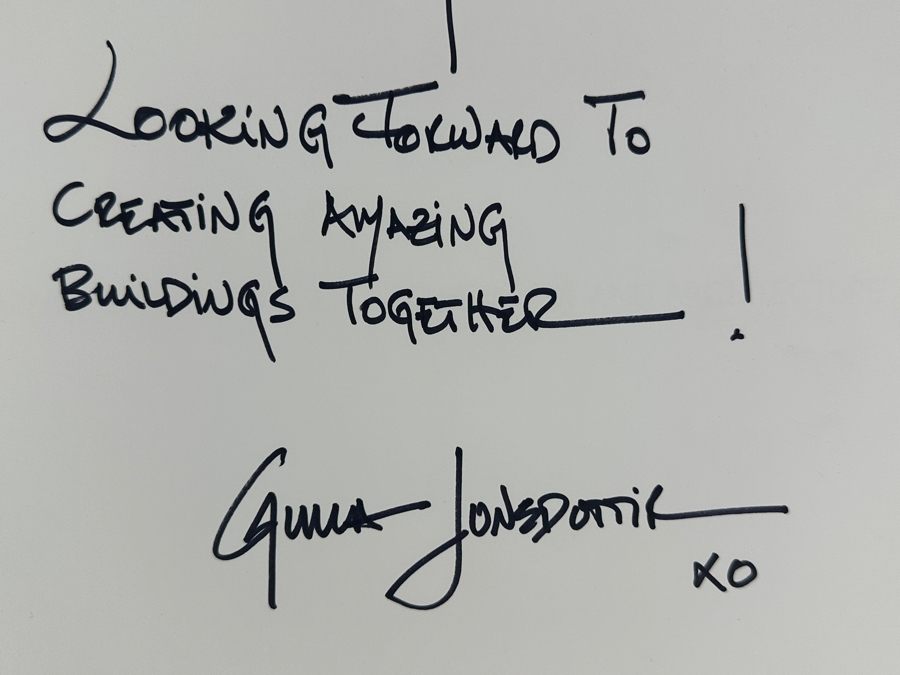 LOOKiNG FORWARD TO
CREATiNG AMAZiNG
BUiLDiNGS TOGETHER !
GUNNA JONSDOTTiR
XO